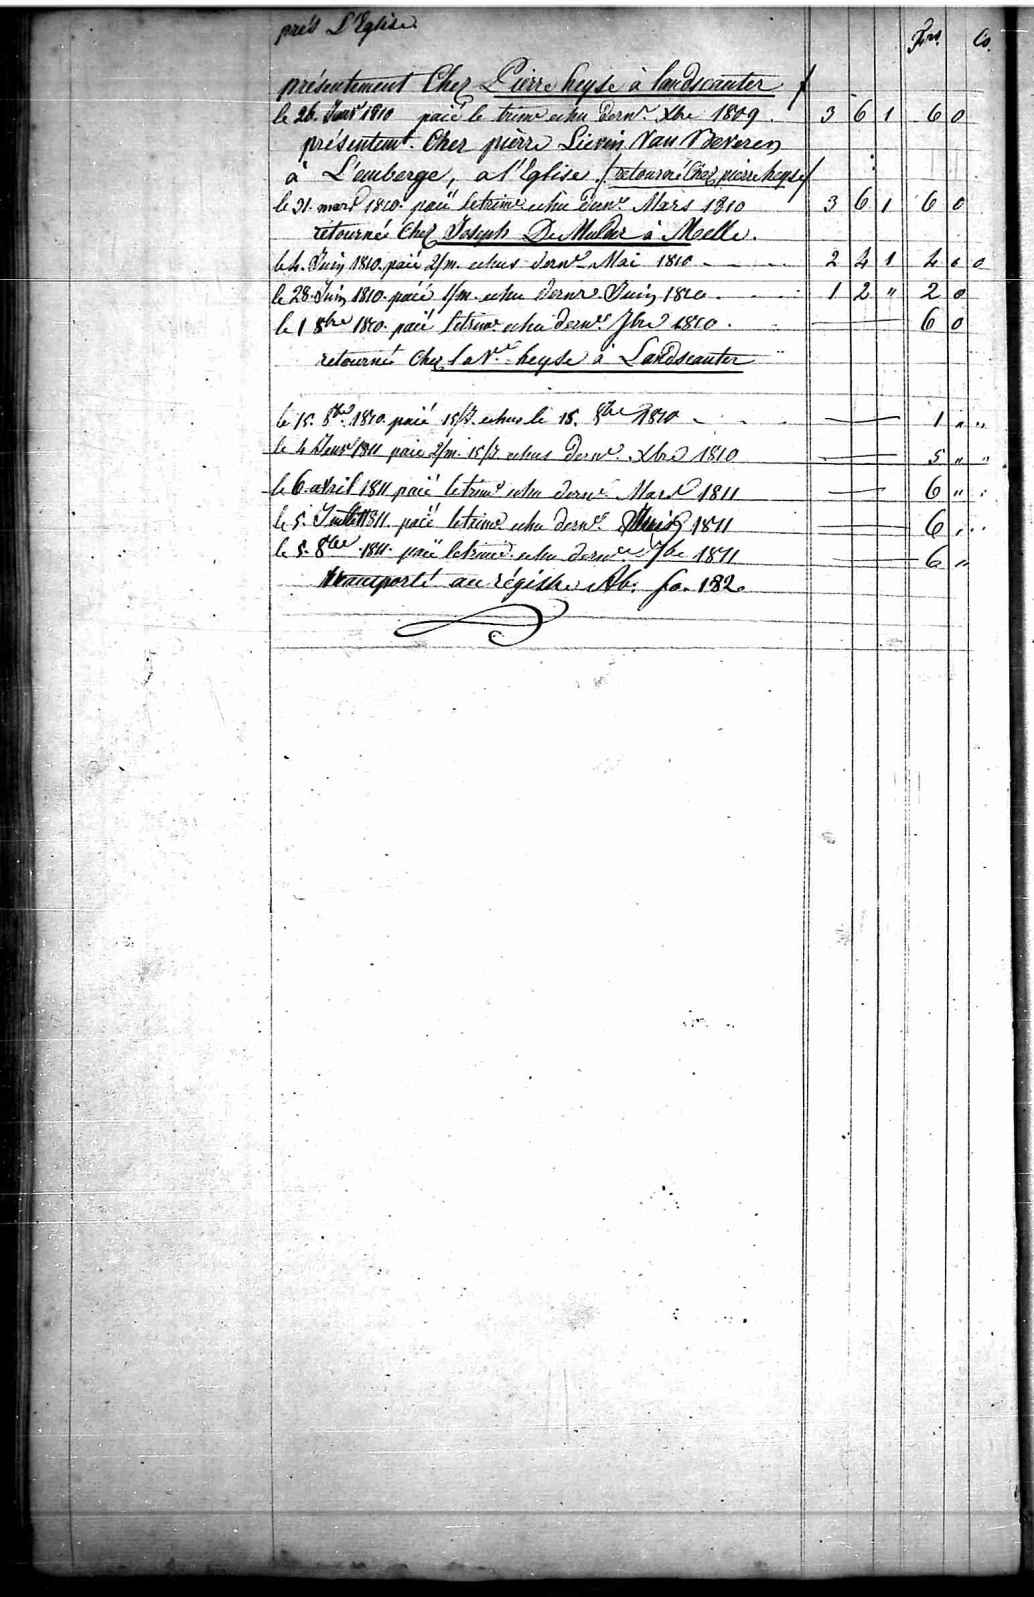 près L'Eglise
Frs. Cs.
présentement Chez Pierre heyse à landscauter
le 26. Janvr 1810 paié le trime echu dernr. Xbre 1809. 3 6 1 6 0
présentemt. Chez pièrre Lievin Van Beveren
à L'emberge, a l'Eglise /retourné Chez pierre heyse/
le 31. mars 1810. paié le trime echu dernr. Mars 1810 3 6 1 6 0
retourné Chez Joseph De Mulder à Melle.
le 4. Juin 1810. paié 2/m. echus dernr. Mai 1810 - - - 2 4 1 4 0 0
le 28. Juin 1810. paié 1/m. echu dernr. Juin 1810. 1 2 " 2 0
le 1 8bre 1810. paié le trime echu dernr. 7bre 1810. — 6 0
retourné Chez la Ve. heyse à Landscauter
le 15. 8bre. 1810. paié 15/J. echus le 15. 8bre 1810 - — 1 " "
le 4 Janvr 1811 paié 2/m. 15/J echus dernr. Xbre 1810 — 5 " "
le 6 avril 1811 paié le trime echu dernr. Mars 1811 — 6 " "
le 5. Juillet 1811. paié le trime echu dernr. Juin 1811 — 6 " "
le 5. 8bre 1811. paié le trime. echu dernr 7bre 1811 — 6 "
transporté au régistre Ab. fo. 182.